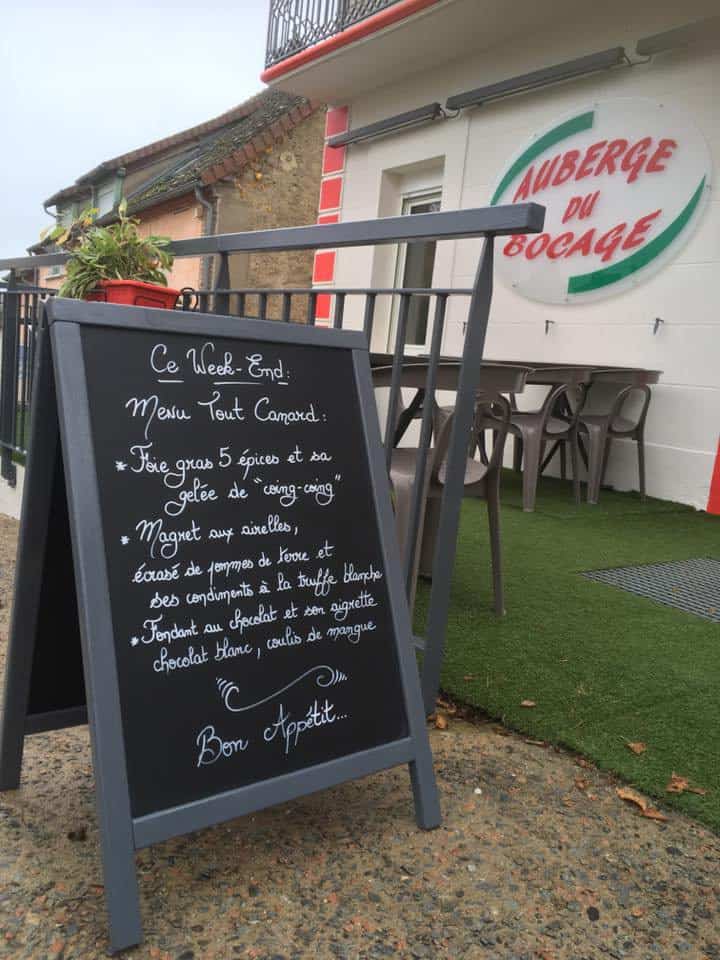 AUBERGE
DU
BOCAGE
Ce Week-End:
Menu Tout Canard:
* Foie gras 5 épices et sa
gelée de "coing-coing"
* Magret aux airelles,
écrasé de pommes de terre et
ses condiments à la truffe blanche
* Fondant au chocolat et son aigrette
chocolat blanc, coulis de mangue
Bon Appétit...